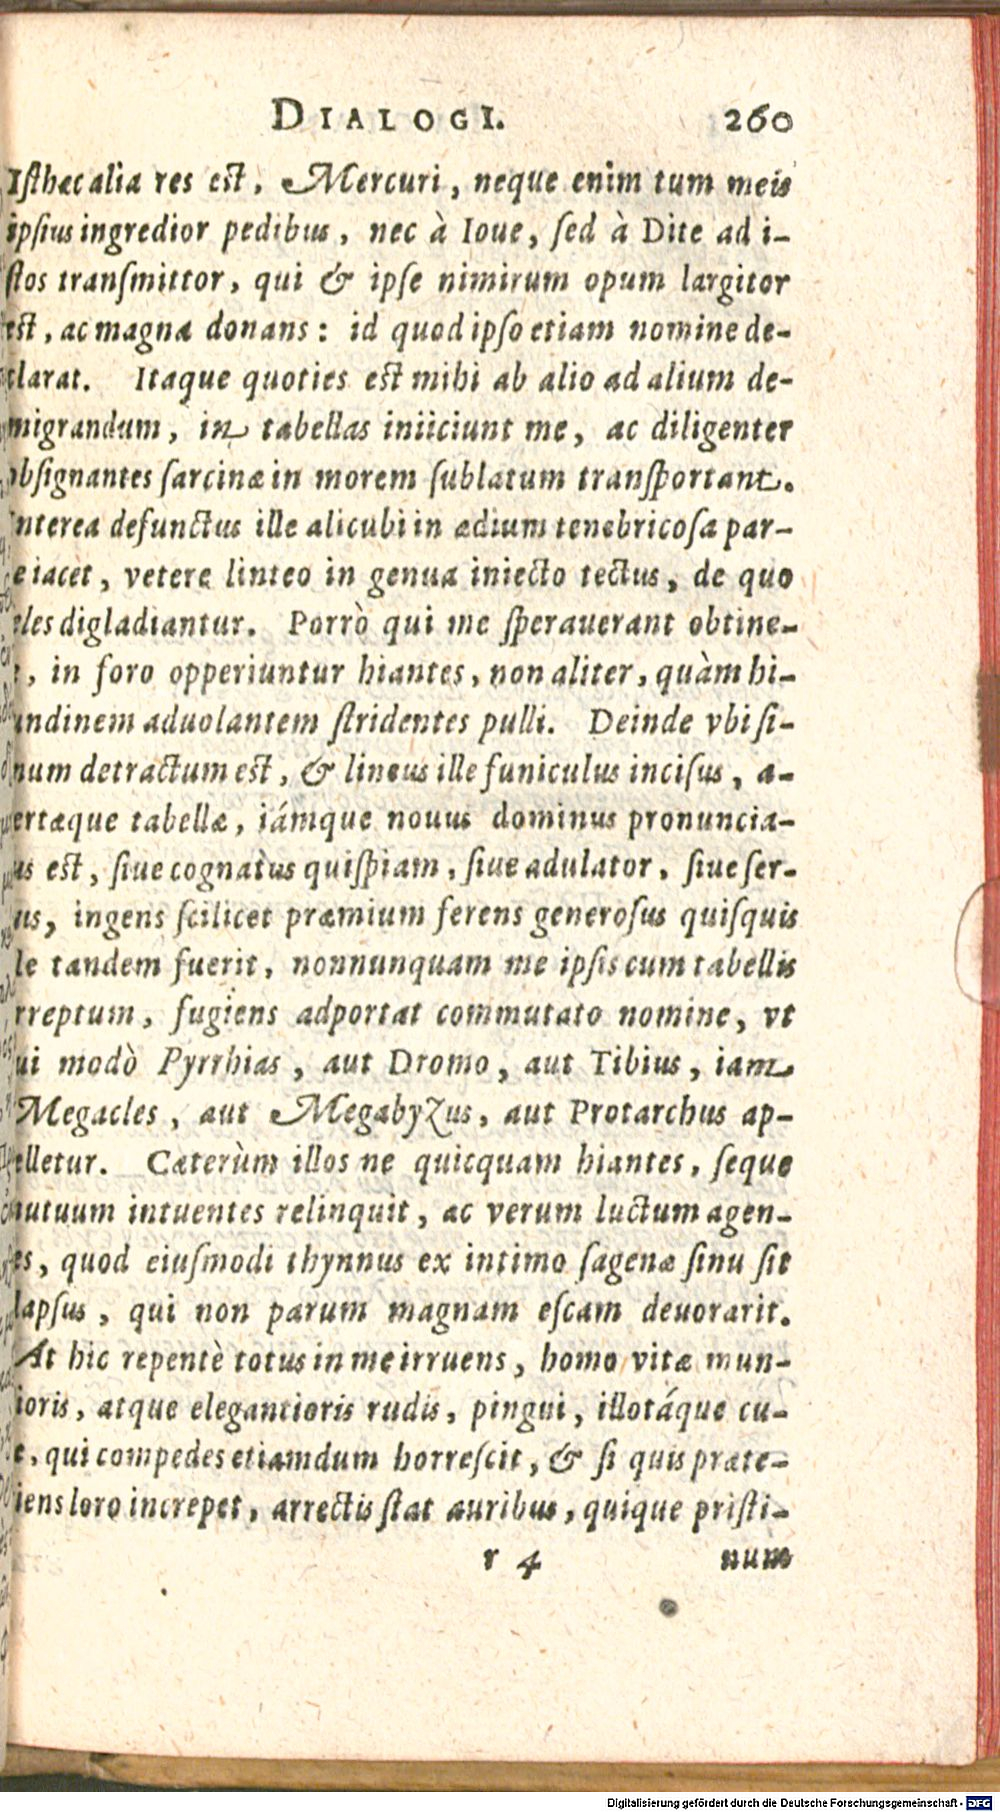 DIALOGI. 260
Iſthæc alia res eſt, Mercuri, neque enim tum meis
ipſius ingredior pedibus, nec à Ioue, ſed à Dite ad i-
ſtos tranſmittor, qui & ipſe nimirum opum largitor
eſt, ac magna donans: id quod ipſo etiam nomine de-
clarat. Itaque quoties eſt mihi ab alio ad alium de-
migrandum, in tabellas iniiciunt me, ac diligenter
obſignantes ſarcinæ in morem ſublatum tranſportant.
Interea defunctus ille alicubi in ædium tenebricoſa par-
e iacet, vetere linteo in genua iniecto tectus, de quo
eles digladiantur. Porrò qui me ſperauerant obtine-
, in foro opperiuntur hiantes, non aliter, quàm hi-
undinem aduolantem ſtridentes pulli. Deinde vbi ſi-
num detractum eſt, & lineus ille funiculus inciſus, a-
ertæque tabellæ, iámque nouus dominus pronuncia-
us eſt, ſiue cognatùs quiſpiam, ſiue adulator, ſiue ſer-
us, ingens ſcilicet præmium ferens generoſus quiſquis
le tandem fuerit, nonnunquam me ipſis cum tabellis
rreptum, fugiens adportat commutato nomine, vt
ui modò Pyrrhias, aut Dromo, aut Tibius, iam
Megacles, aut Megabyzus, aut Protarchus ap-
elletur. Cæterùm illos ne quicquam hiantes, ſeque
utuum intuentes relinquit, ac verum luctum agen-
es, quod eiuſmodi thynnus ex intimo ſagenæ ſinu ſit
lapſus, qui non parum magnam eſcam deuorarit.
At hic repentè totus in me irruens, homo vitæ mun-
ioris, atque elegantioris rudis, pingui, illotáque cu-
e, qui compedes etiamdum horreſcit, & ſi quis præte-
iens loro increpet, arrectis ſtat auribus, quique priſti-
r 4 num
Digitalisierung gefördert durch die Deutsche Forschungsgemeinschaft - DFG